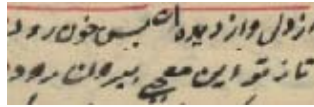 از دل و از دیده‌ات بس خون رود
تا ز تو این معجبی بیرون رود